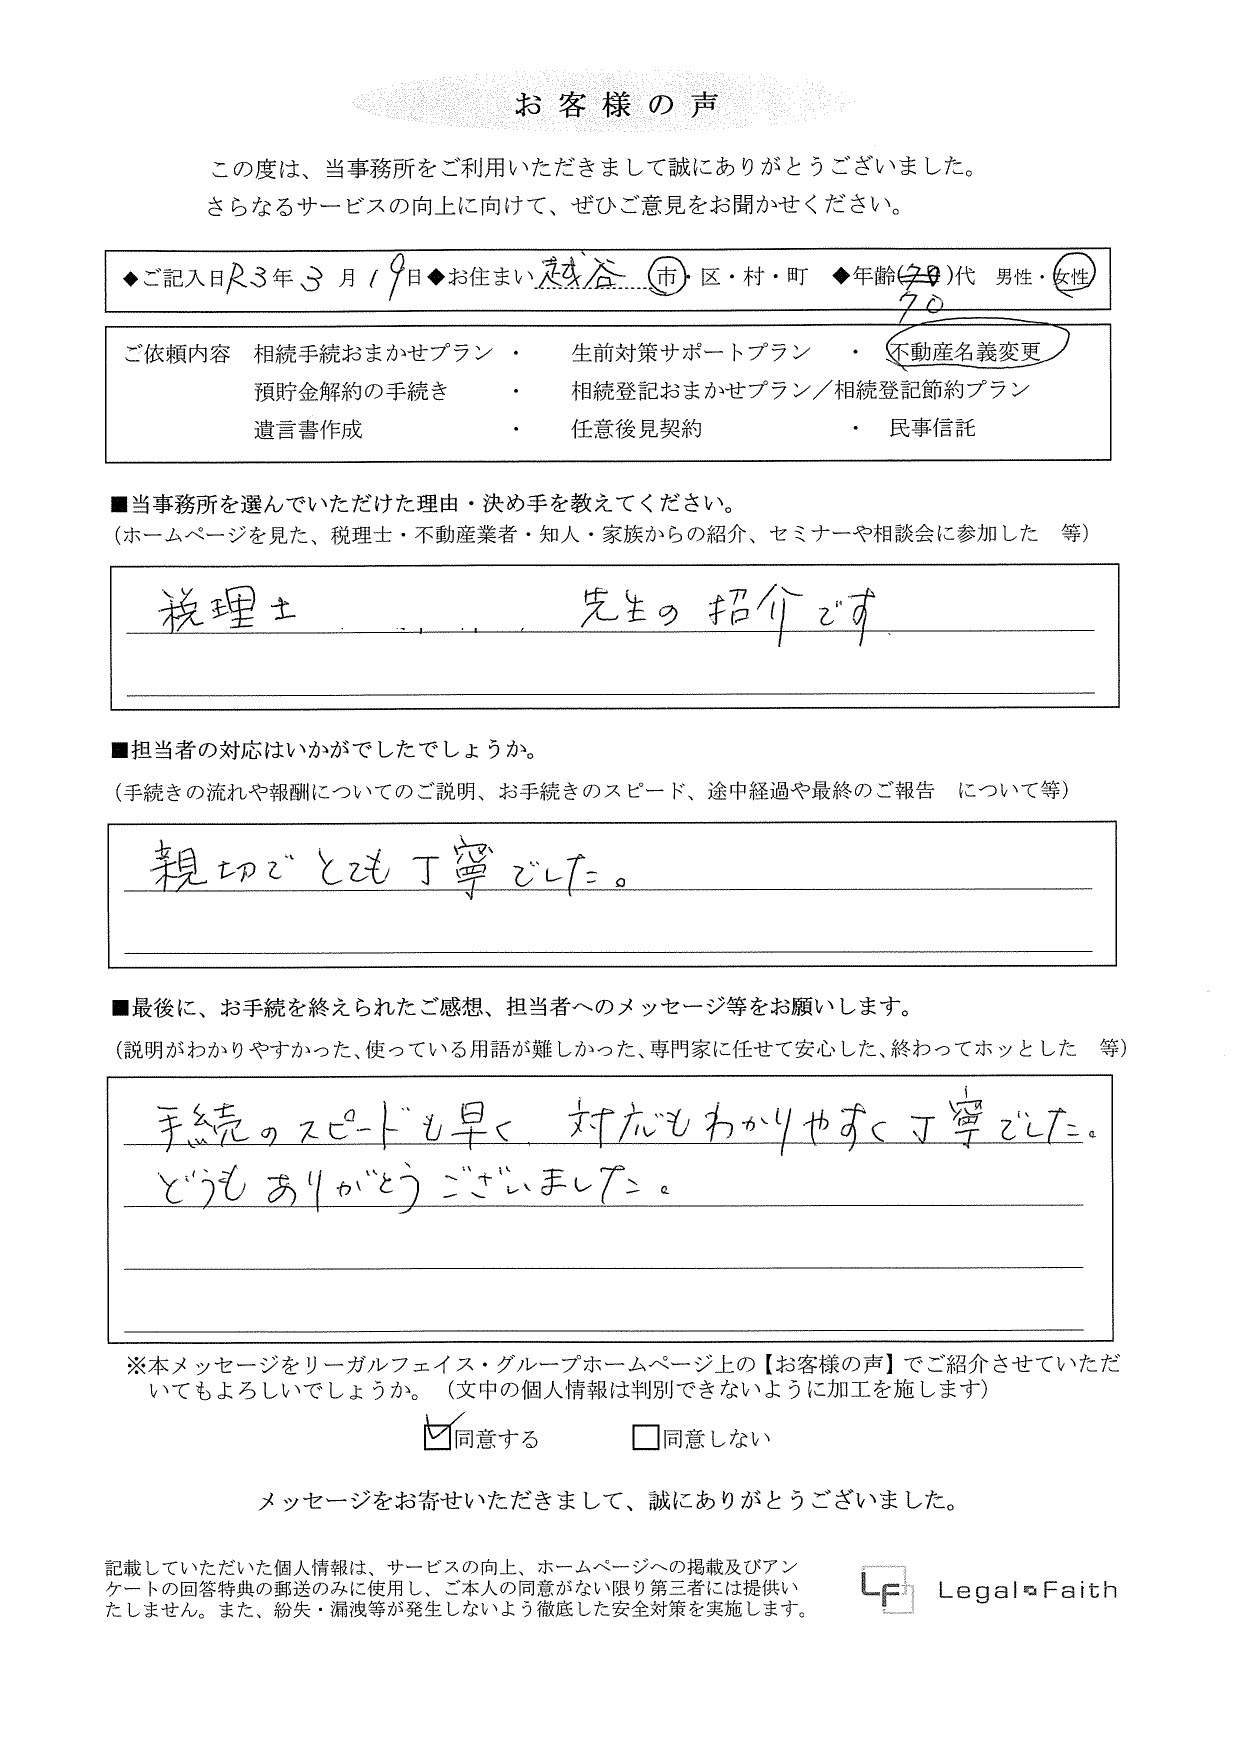 お客様の声
この度は、当事務所をご利用いただきまして誠にありがとうございました。
さらなるサービスの向上に向けて、ぜひご意見をお聞かせください。
◆ご記入日R3年3月19日◆お住まい越谷 市・区・村・町 ◆年齢( )代 男性・女性
70
ご依頼内容 相続手続おまかせプラン ・ 生前対策サポートプラン ・ 不動産名義変更
預貯金解約の手続き ・ 相続登記おまかせプラン／相続登記節約プラン
遺言書作成 ・ 任意後見契約 ・ 民事信託
■当事務所を選んでいただけた理由・決め手を教えてください。
（ホームページを見た、税理士・不動産業者・知人・家族からの紹介、セミナーや相談会に参加した 等）
税理士 先生の紹介です
■担当者の対応はいかがでしたでしょうか。
（手続きの流れや報酬についてのご説明、お手続きのスピード、途中経過や最終のご報告 について等）
親切でとても丁寧でした。
■最後に、お手続を終えられたご感想、担当者へのメッセージ等をお願いします。
（説明がわかりやすかった、使っている用語が難しかった、専門家に任せて安心した、終わってホッとした 等）
手続のスピードも早く 対応もわかりやすく丁寧でした。
どうもありがとうございました。
※本メッセージをリーガルフェイス・グループホームページ上の【お客様の声】でご紹介させていただ
いてもよろしいでしょうか。（文中の個人情報は判別できないように加工を施します）
☑同意する □同意しない
メッセージをお寄せいただきまして、誠にありがとうございました。
記載していただいた個人情報は、サービスの向上、ホームページへの掲載及びアン
ケートの回答特典の郵送のみに使用し、ご本人の同意がない限り第三者には提供い
たしません。また、紛失・漏洩等が発生しないよう徹底した安全対策を実施します。
LF Legal Faith